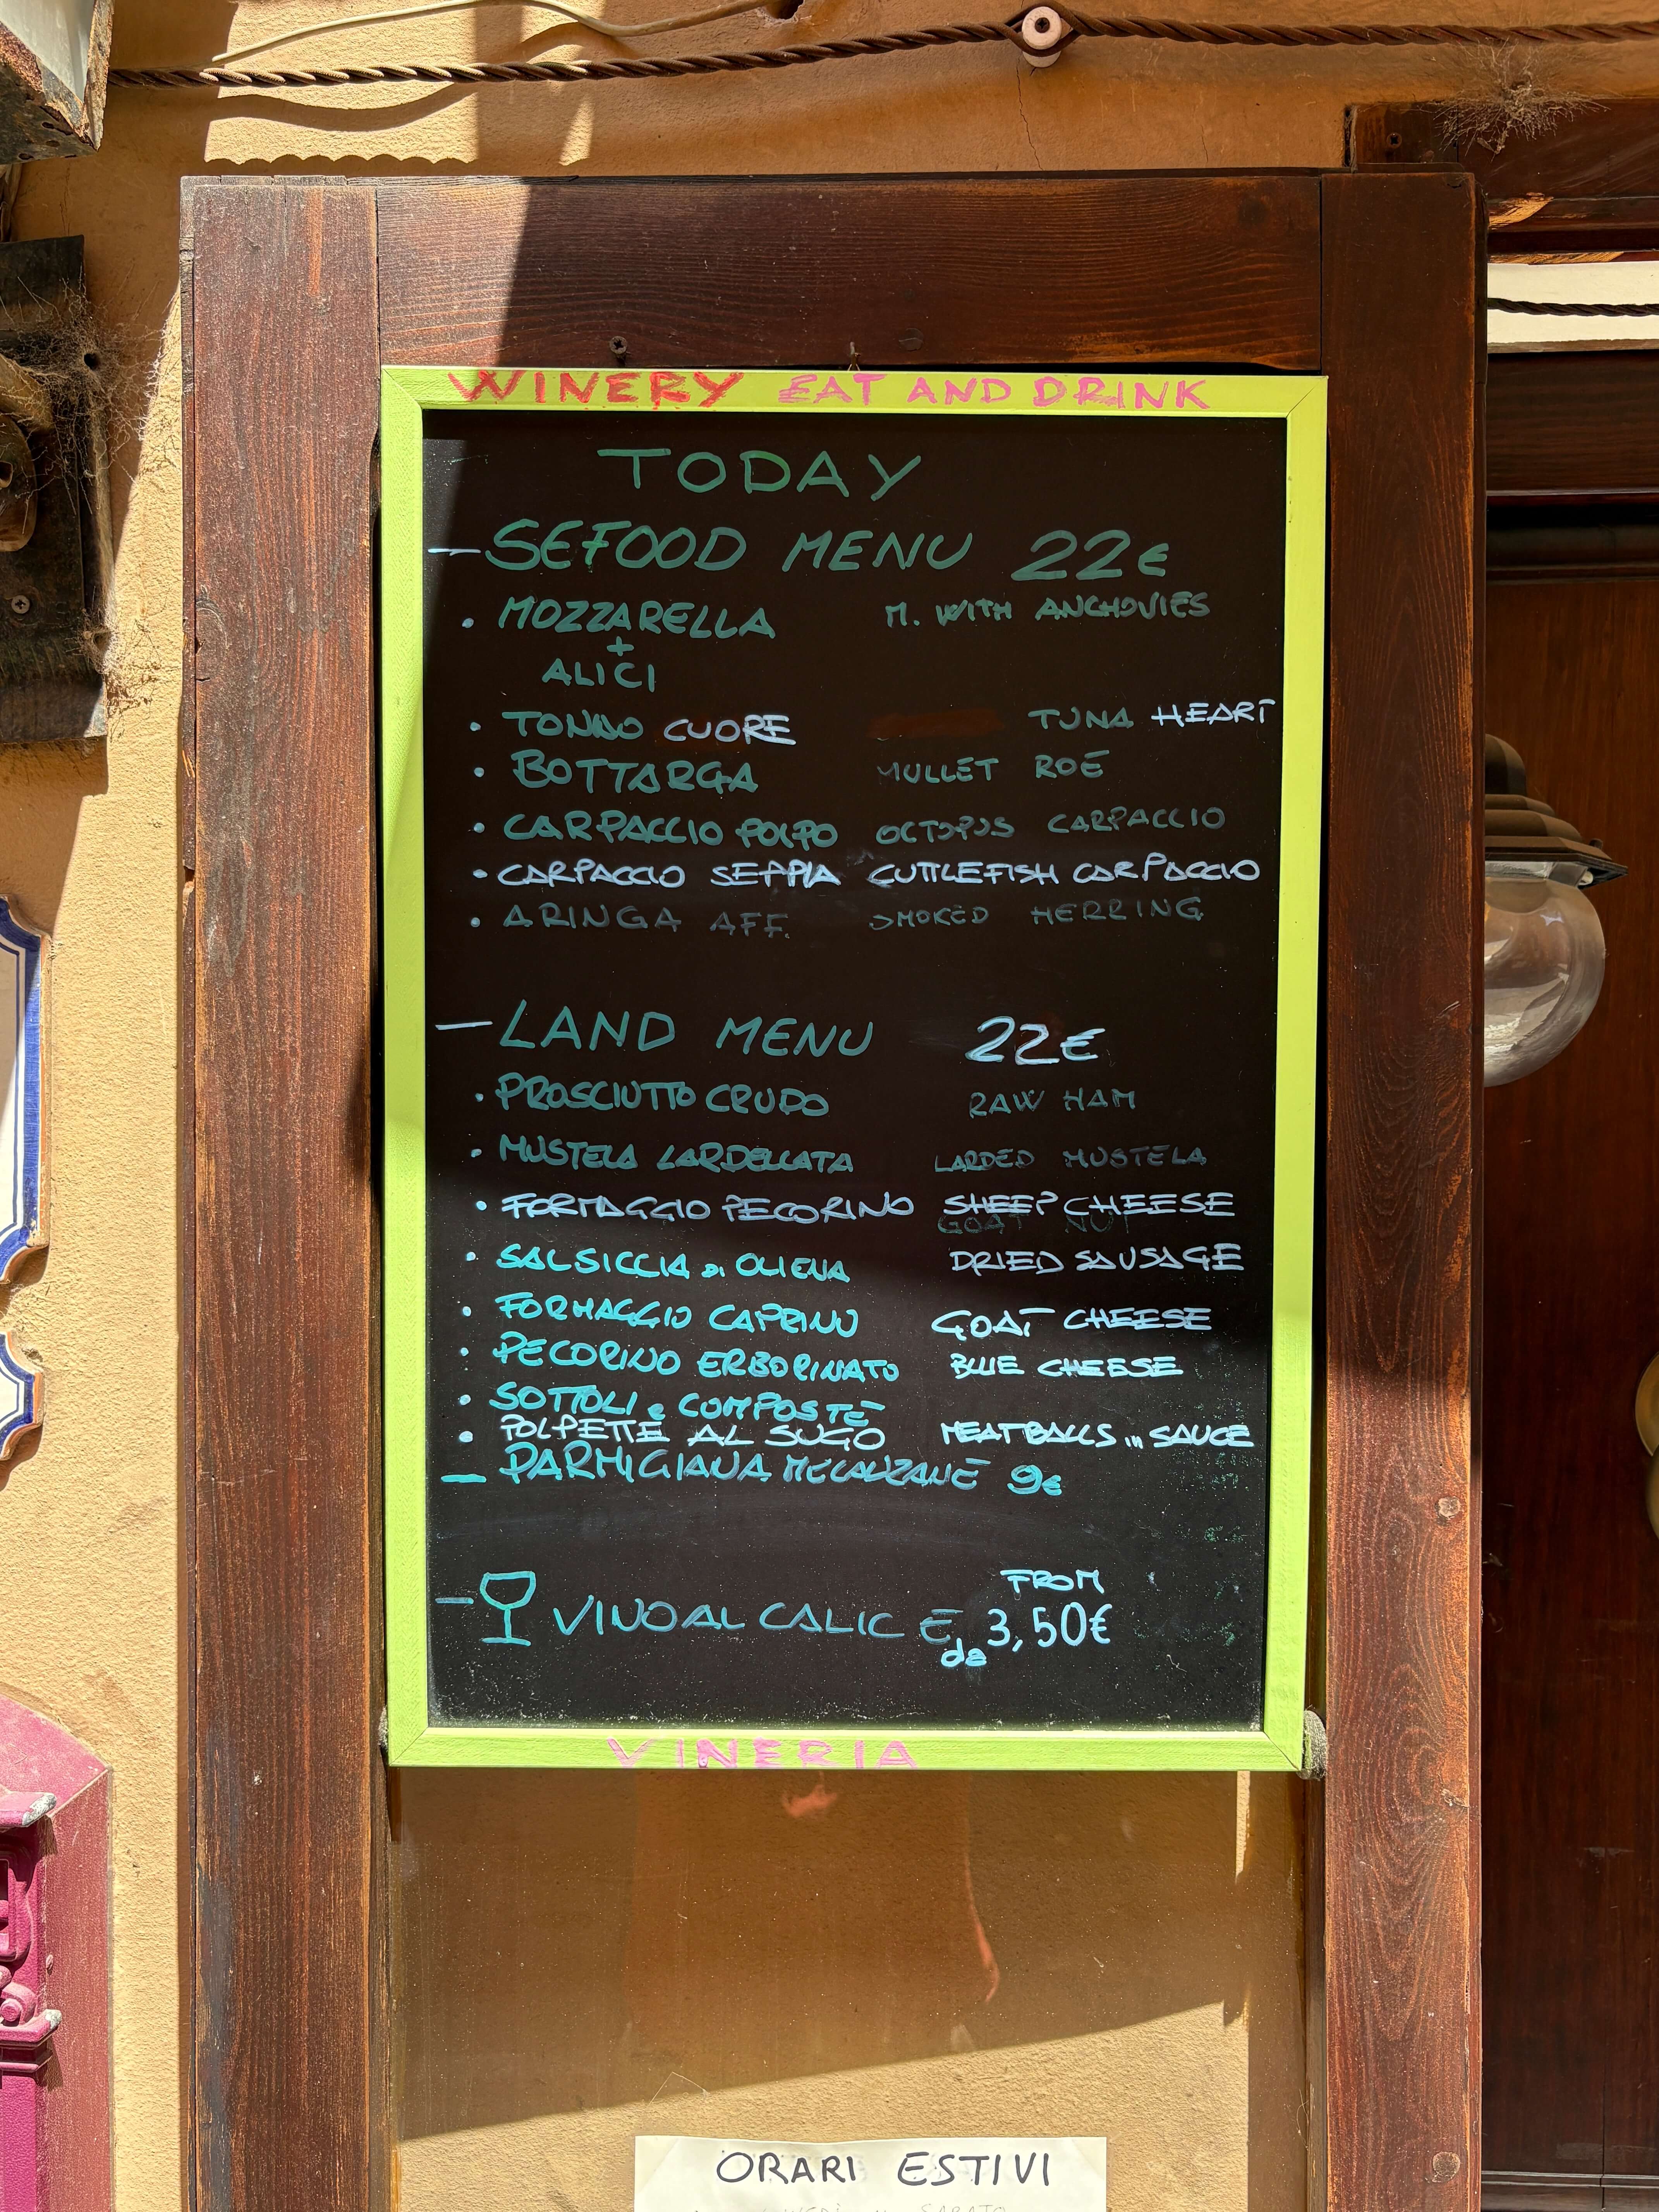 WINERY EAT AND DRINK
TODAY
— SEFOOD MENU 22€
• MOZZARELLA M. WITH ANCHOVIES
+
ALICI
• TONNO CUORE TUNA HEART
• BOTTARGA MULLET ROE
• CARPACCIO POLPO OCTOPUS CARPACCIO
• CARPACCIO SEPPIA CUTTLEFISH CARPACCIO
• ARINGA AFF. SMOKED HERRING
— LAND MENU 22€
• PROSCIUTTO CRUDO RAW HAM
• MUSTELA LARDELLATA LARDED MUSTELA
• FORMAGGIO PECORINO SHEEP CHEESE
GOAT NUT
• SALSICCIA DI OLIENA DRIED SAUSAGE
• FORMAGGIO CAPRINO GOAT CHEESE
• PECORINO ERBORINATO BLUE CHEESE
• SOTTOLI e COMPOSTE
• POLPETTE AL SUGO MEATBALLS in SAUCE
— PARMIGIANA MELANZANE 9€
FROM
— VINO AL CALICE da 3,50€
VINERIA
ORARI ESTIVI
SABATO